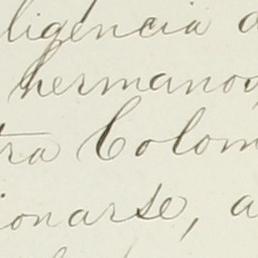 ligencia
hermanos
tra Colom
ionarse, a